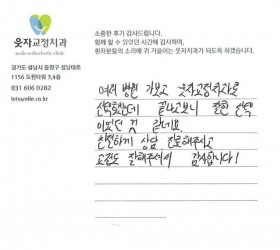 웃자교정치과
smile orthodontic clinic
경기도 성남시 중원구 성남대로
1156 도원타워 3,4층
031 606 0282
letssmile.co.kr
소중한 후기 감사드립니다.
함께 할 수 있었던 시간에 감사하며
환자분들의 소리에 귀 기울이는 웃자치과가 되도록 하겠습니다.
여러 병원 가보고 웃자교정치과로
선택했는데 끝나고보니 잘한 선택
이었던 것 같네요.
친절하게 상담, 진료해주시고
교정도 잘해주셔서 감사합니다!